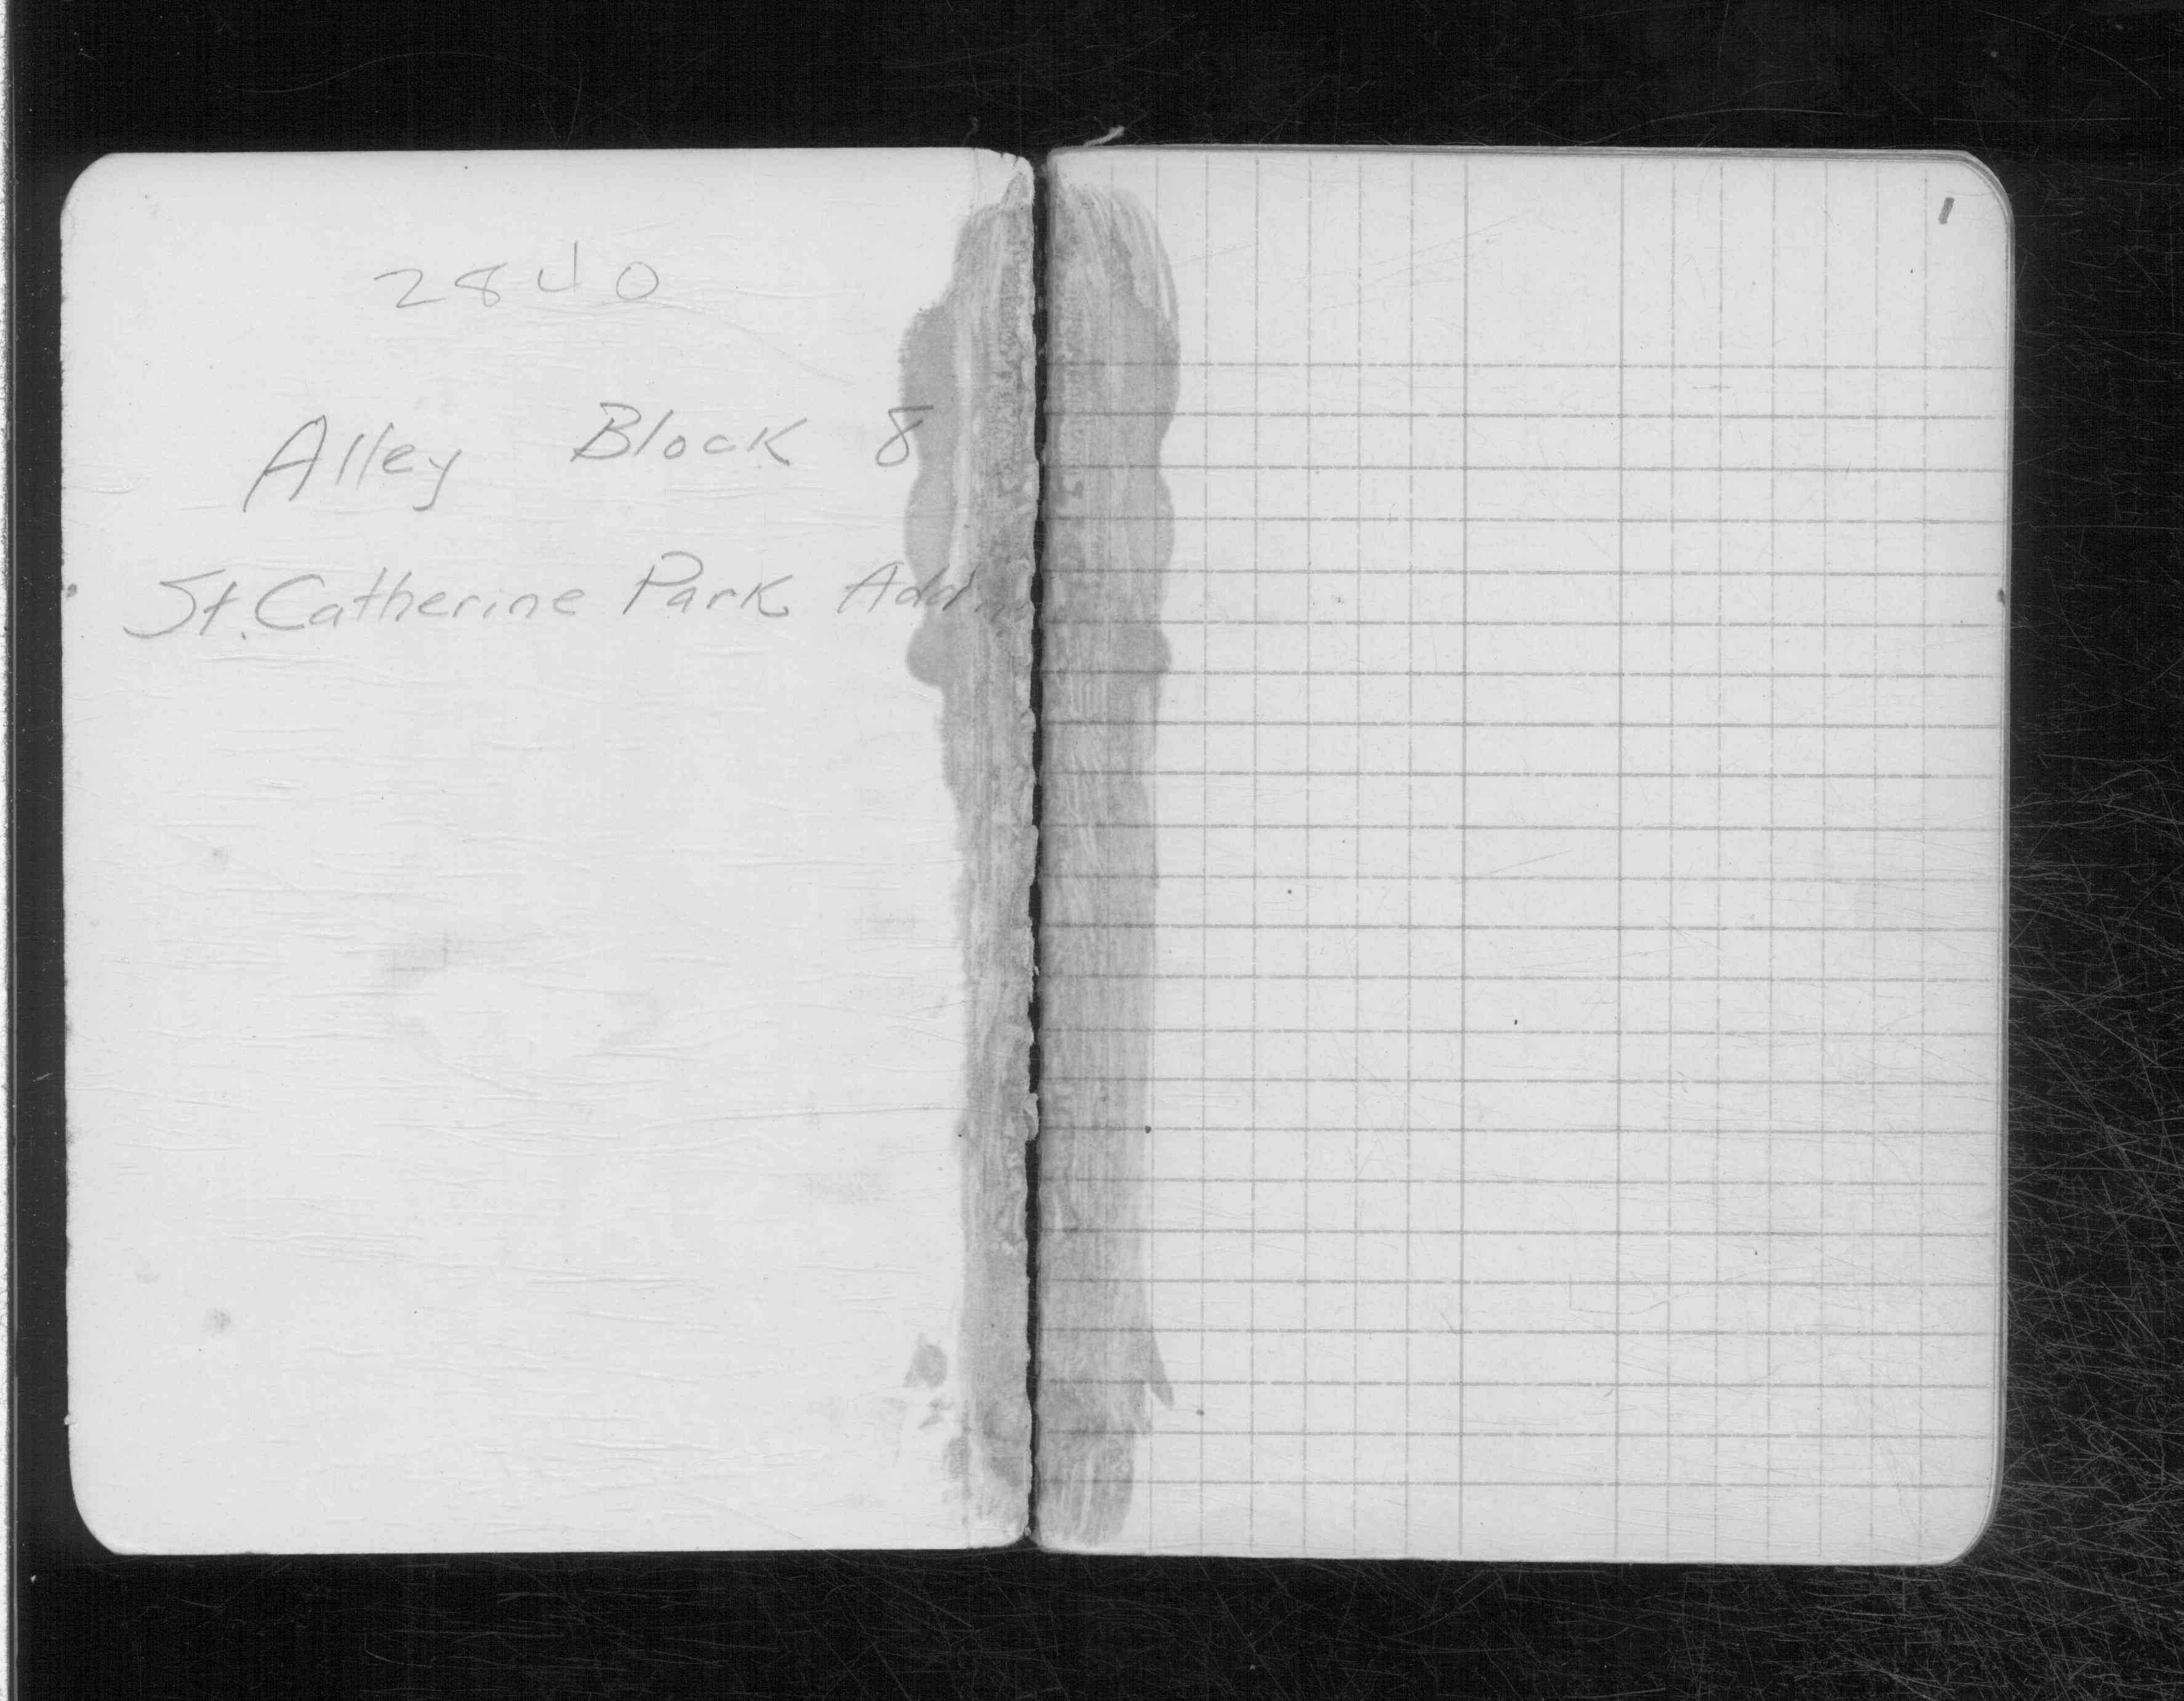 2840
Alley Block 8
St. Catherine Park Add.
1